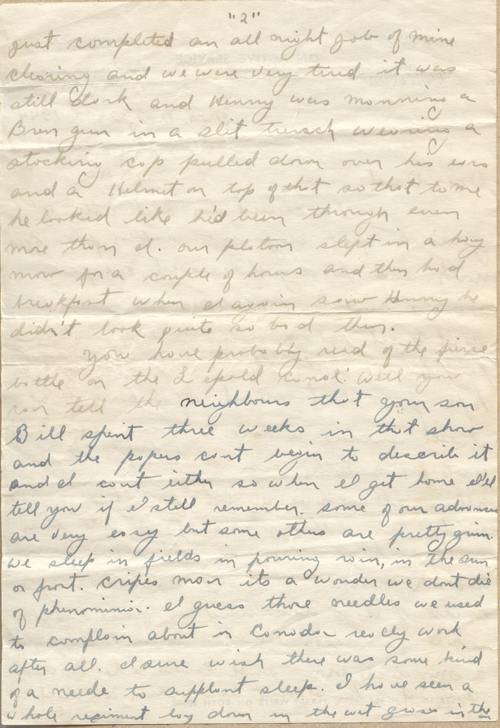 "2"
just completed an all night job of mine
clearing and we were very tired it was
still dark and Henny was manning a
Bren gun in a slit trench wearing a
stocking cap pulled down over his ears
and a Helmet on top of that so that to me
he looked like he'd been through even
more than I. our platoon slept in a hay
mow for a couple of hours and then had
breakfast when I again saw Henny he
didn't look quite so bad then.
You have probably read of the fierce
battle on the Leopold Canal. well you
can tell the neighbours that your son
Bill spent three weeks in that show
and the papers cant begin to describe it
and I cant either so when I get home I'll
tell you if I still remember. some of our advances
are very easy but some others are pretty grim.
we sleep in fields in pouring rain, in the sun
or frost. cripes mom its a wonder we dont die
of phenominia. I guess those needles we used
to complain about in Canada really work
after all. I sure wish there was some kind
of a needle to supplant sleep. I have seen a
whole regiment lay down in the wet grass in the